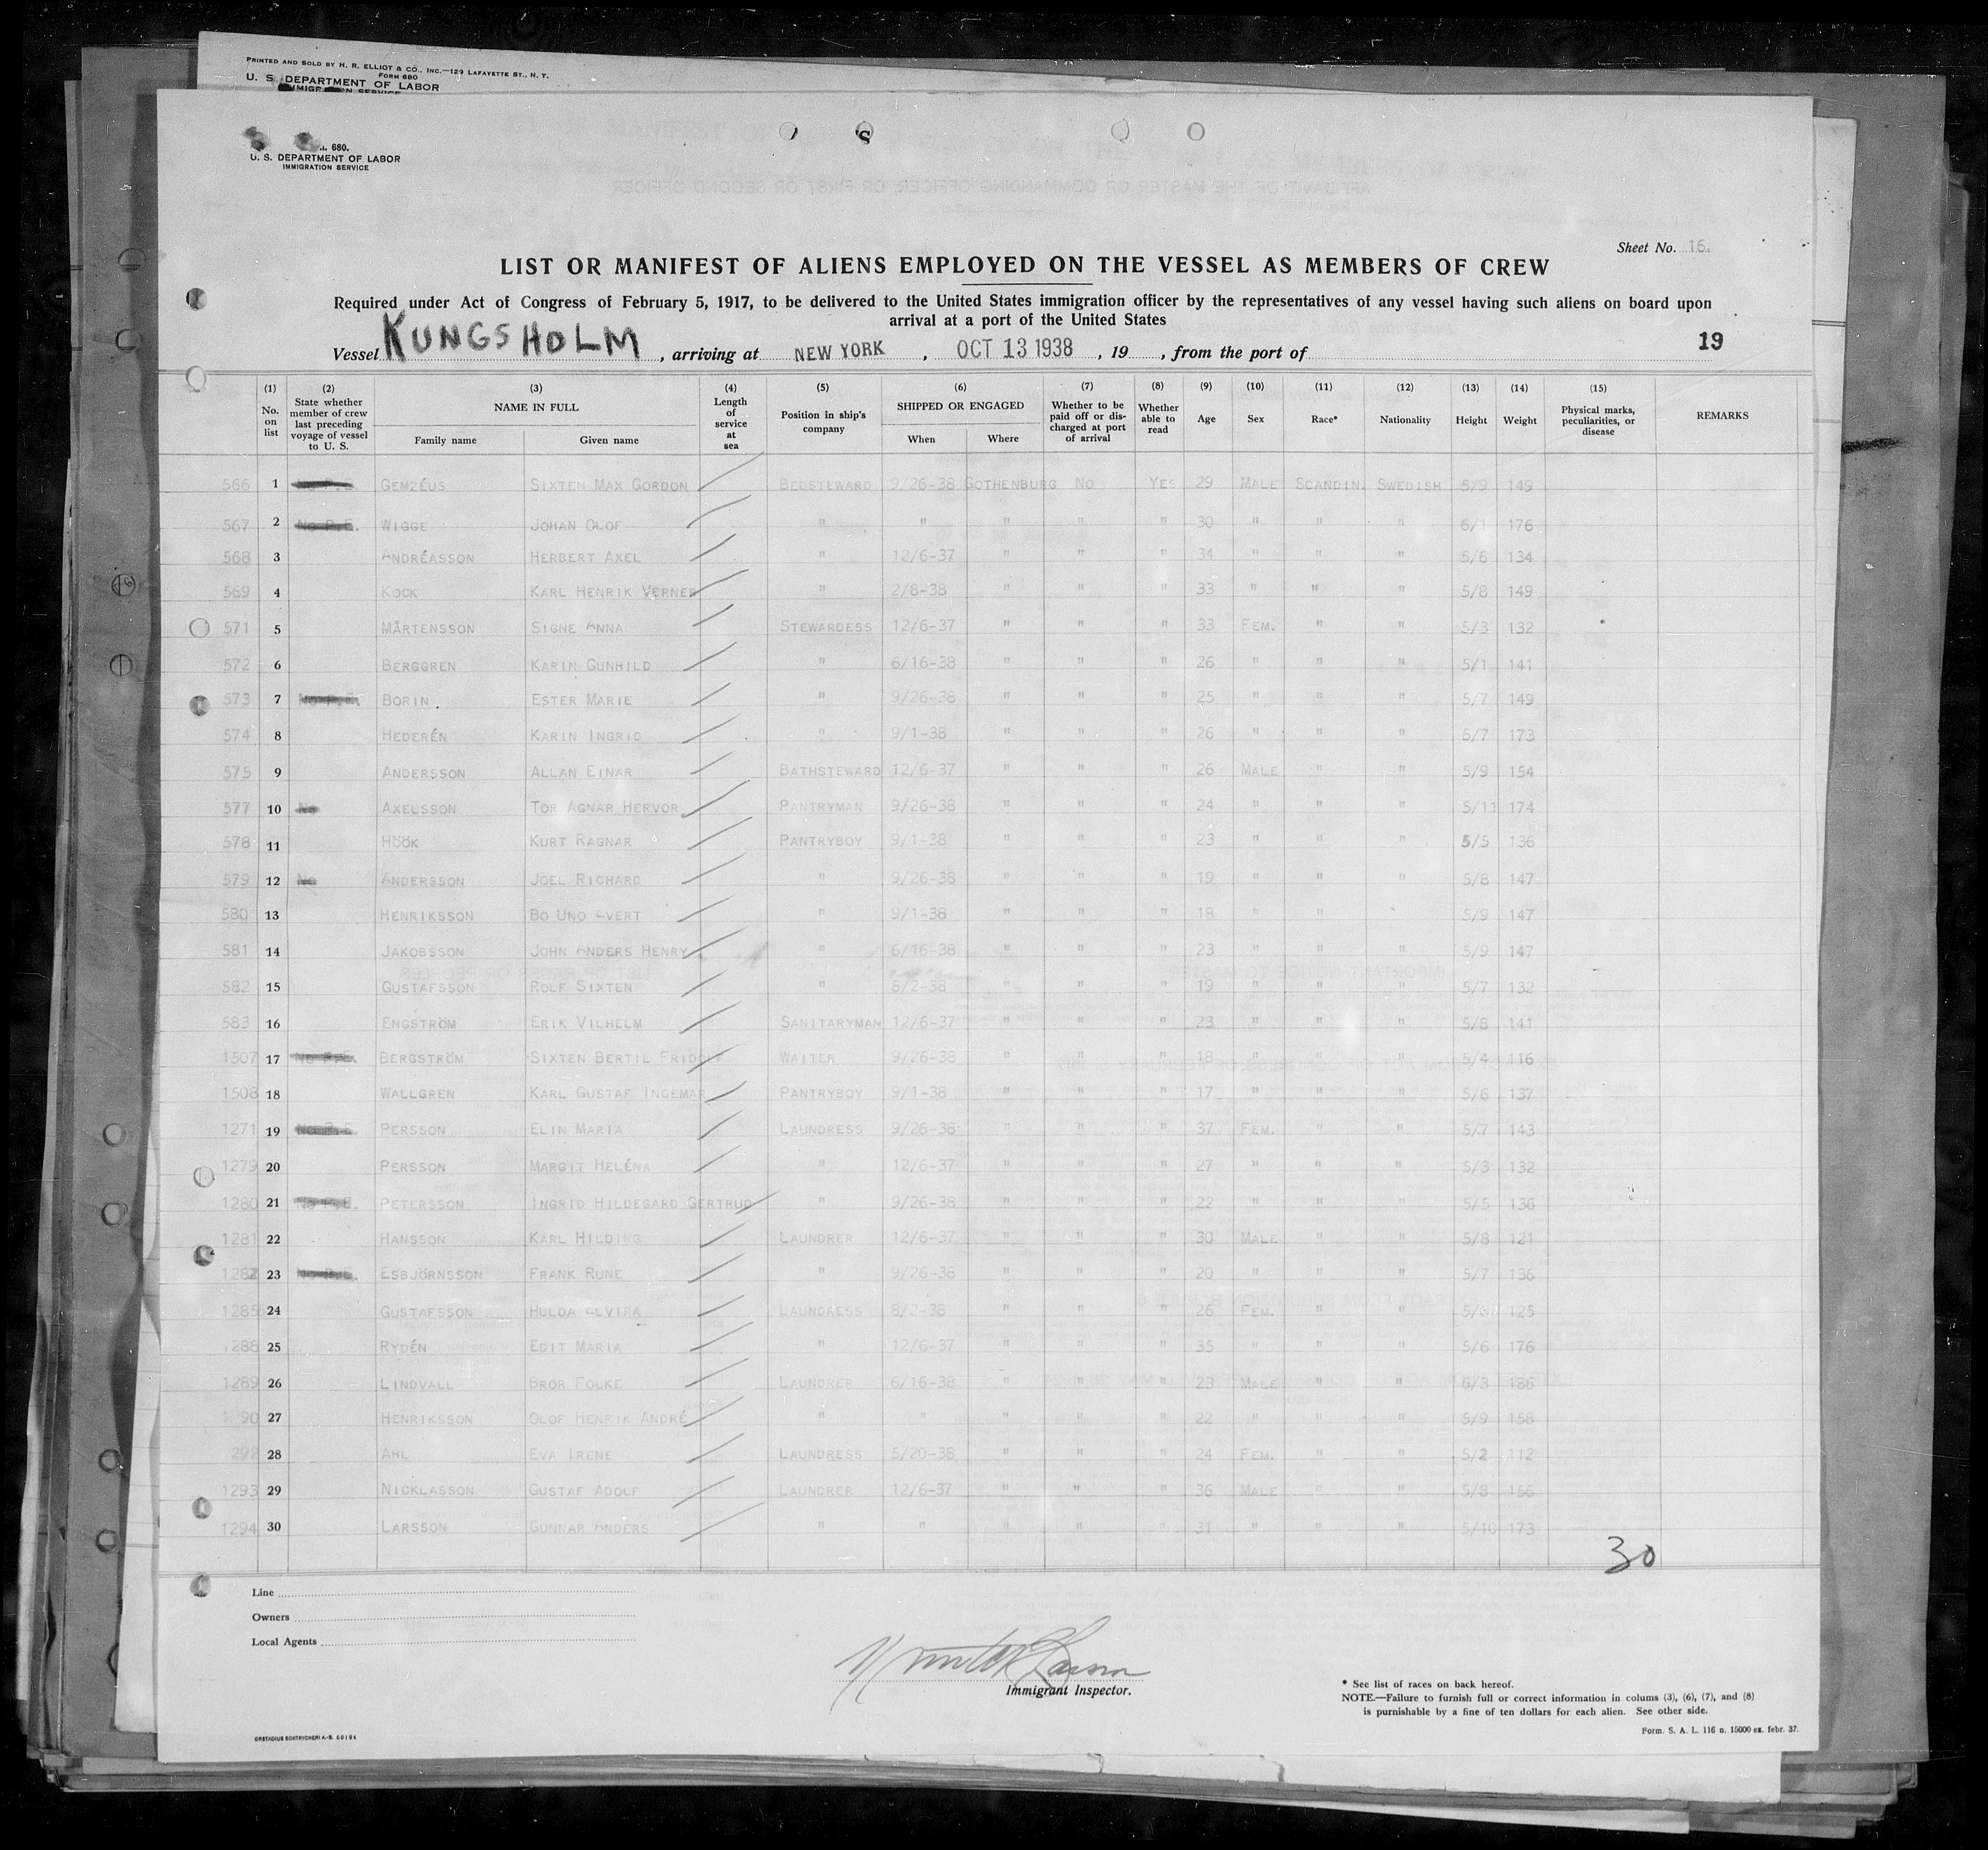 PRINTED AND SOLD BY H. R. ELLIOT & CO., INC.—129 LAFAYETTE ST., N. Y.
FORM 680
U. S. DEPARTMENT OF LABOR
680.
U. S. DEPARTMENT OF LABOR
IMMIGRATION SERVICE
Sheet No. 16.
LIST OR MANIFEST OF ALIENS EMPLOYED ON THE VESSEL AS MEMBERS OF CREW
Required under Act of Congress of February 5, 1917, to be delivered to the United States immigration officer by the representatives of any vessel having such aliens on board upon
arrival at a port of the United States
19
Vessel KUNGSHOLM, arriving at NEW YORK, OCT 13 1938, 19 , from the port of
(1) No. on list (2) State whether member of crew last preceding voyage of vessel to U. S. (3) NAME IN FULL Family name Given name (4) Length of service at sea (5) Position in ship's company (6) SHIPPED OR ENGAGED When Where (7) Whether to be paid off or discharged at port of arrival (8) Whether able to read (9) Age (10) Sex (11) Race* (12) Nationality (13) Height (14) Weight (15) Physical marks, peculiarities, or disease REMARKS
566 1 GEMZÉUS SIXTEN MAX GORDON BEDSTEWARD 9/26-38 GOTHENBURG NO YES 29 MALE SCANDIN. SWEDISH 5/9 149
567 2 No P.E. WIGGE JOHAN OLOF " " " " " 30 " " " 6/1 176
568 3 ANDRÉASSON HERBERT AXEL " 12/6-37 " " " 34 " " " 5/6 134
569 4 KOCK KARL HENRIK VERNER " 2/8-38 " " " 33 " " " 5/8 149
571 5 MÅRTENSSON SIGNE ANNA STEWARDESS 12/6-37 " " " 33 FEM. " " 5/3 132
572 6 BERGGREN KARIN GUNHILD " 6/16-38 " " " 26 " " " 5/1 141
573 7 No P.E. BORIN ESTER MARIE " 9/26-38 " " " 25 " " " 5/7 149
574 8 HEDERÉN KARIN INGRID " 9/1-38 " " " 26 " " " 5/7 173
575 9 ANDERSSON ALLAN EINAR BATHSTEWARD 12/6-37 " " " 26 MALE " " 5/9 154
577 10 No AXELSSON TOR AGNAR HERVOR PANTRYMAN 9/26-38 " " " 24 " " " 5/11 174
578 11 HÖÖK KURT RAGNAR PANTRYBOY 9/1-38 " " " 23 " " " 5/5 136
579 12 No ANDERSSON JOEL RICHARD " 9/26-38 " " " 19 " " " 5/8 147
580 13 HENRIKSSON BO UNO EVERT " 9/1-38 " " " 18 " " " 5/9 147
581 14 JAKOBSSON JOHN ANDERS HENRY " 6/16-38 " " " 23 " " " 5/9 147
582 15 GUSTAFSSON ROLF SIXTEN " 8/2-38 " " " 19 " " " 5/7 132
583 16 ENGSTRÖM ERIK VILHELM SANITARYMAN 12/6-37 " " " 23 " " " 5/8 141
1507 17 No P.E. BERGSTRÖM SIXTEN BERTIL FRIDOLF WAITER 9/26-38 " " " 18 " " " 5/4 116
1508 18 WALLGREN KARL GUSTAF INGEMAR PANTRYBOY 9/1-38 " " " 17 " " " 5/6 137
1271 19 No P.E. PERSSON ELIN MARIA LAUNDRESS 9/26-38 " " " 37 FEM. " " 5/7 143
1279 20 PERSSON MARGIT HELÉNA " 12/6-37 " " " 27 " " " 5/3 132
1280 21 No P.E. PETERSSON INGRID HILDEGARD GERTRUD " 9/26-38 " " " 22 " " " 5/5 136
1281 22 HANSSON KARL HILDING LAUNDRER 12/6-37 " " " 30 MALE " " 5/8 121
1282 23 No P.E. ESBJÖRNSSON FRANK RUNE " 9/26-38 " " " 20 " " " 5/7 136
1285 24 GUSTAFSSON HULDA ELVIRA LAUNDRESS 8/2-38 " " " 26 FEM. " " 125
288 25 RYDÉN EDIT MARIA " 12/6-37 " " " 35 " " " 5/6 176
1289 26 LINDVALL BROR FOLKE LAUNDRER 6/16-38 " " " 23 MALE " " 6/3 186
90 27 HENRIKSSON OLOF HENRIK ANDRÉ " " " " " 22 " " " 5/9 158
292 28 AHL EVA IRENE LAUNDRESS 5/20-38 " " " 24 FEM. " " 5/2 112
1293 29 NICKLASSON GUSTAF ADOLF LAUNDRER 12/6-37 " " " 36 MALE " " 5/8 156
1294 30 LARSSON GUNNAR ANDERS " " " " " 31 " " " 5/10 173
30
Line
Owners
Local Agents
Immigrant Inspector.
* See list of races on back hereof.
NOTE.—Failure to furnish full or correct information in colums (3), (6), (7), and (8)
is punishable by a fine of ten dollars for each alien. See other side.
Form. S. A. L. 116 n. 15000 ex. febr. 37.
ORSTADIUS BOKTRYCKERI A.-B. 60194